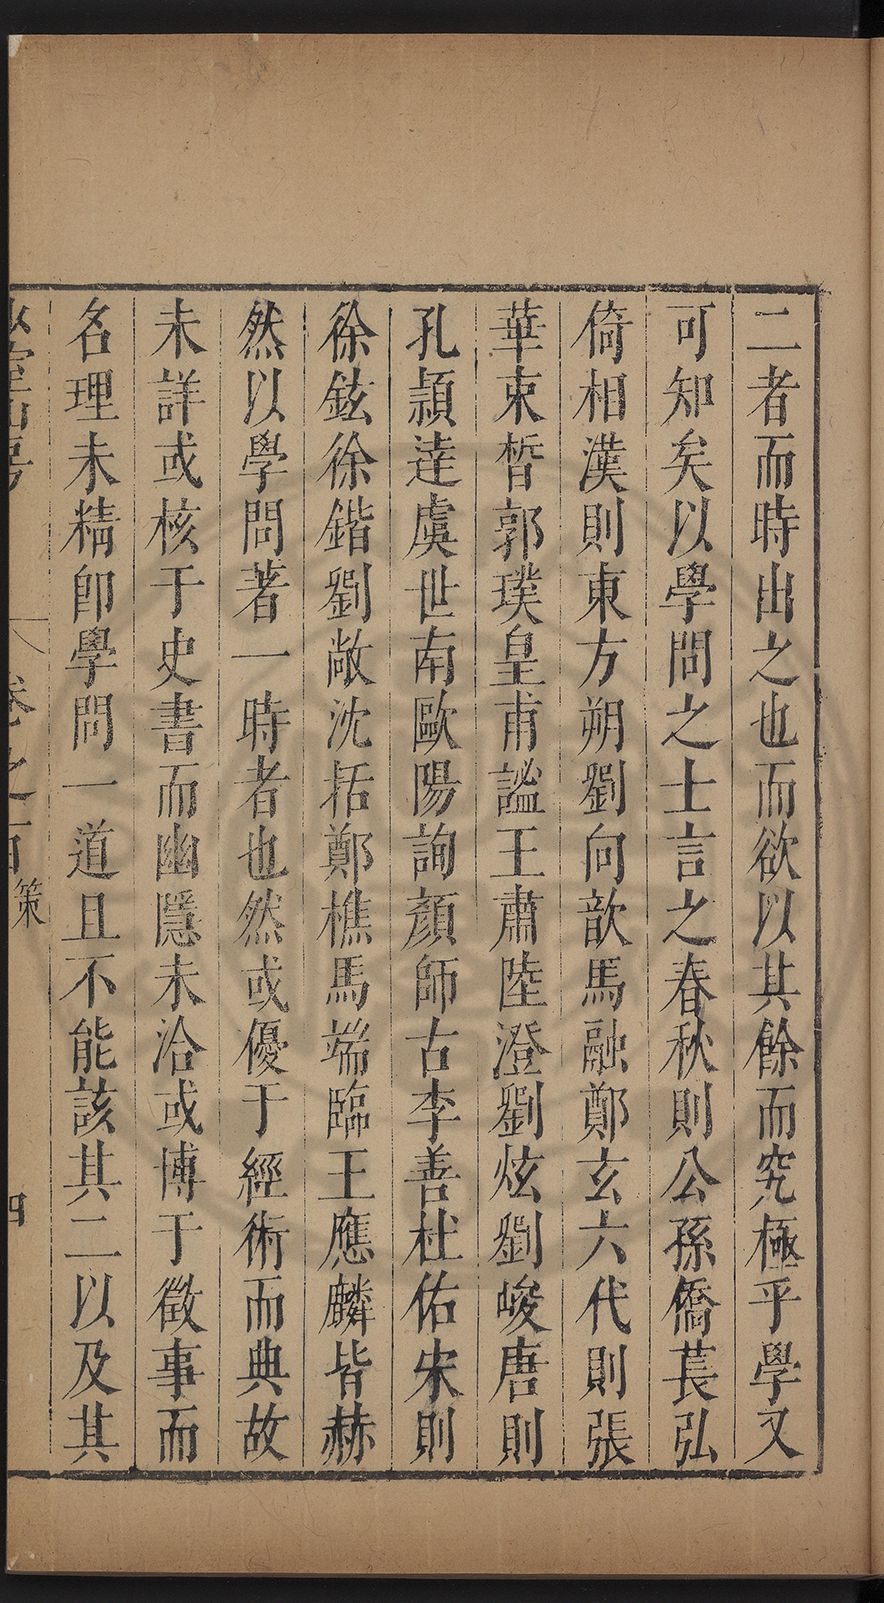 二者而時出之也而欲以其餘而究極乎學又
可知矣以學問之士言之春秋則公孫僑萇弘
倚相漢則東方朔劉向歆馬融鄭玄六代則張
華束晳郭璞皇甫謐王肅陸澄劉炫劉峻唐則
孔穎達虞世南歐陽詢顏師古李善杜佑宋則
徐鉉徐鍇劉敞沈括鄭樵馬端臨王應麟皆赫
然以學問著一時者也然或優于經術而典故
未詳或核于史書而幽隱未洽或博于徵事而
名理未精卽學問一道且不能該其二以及其
室山房 卷之一百 策 四